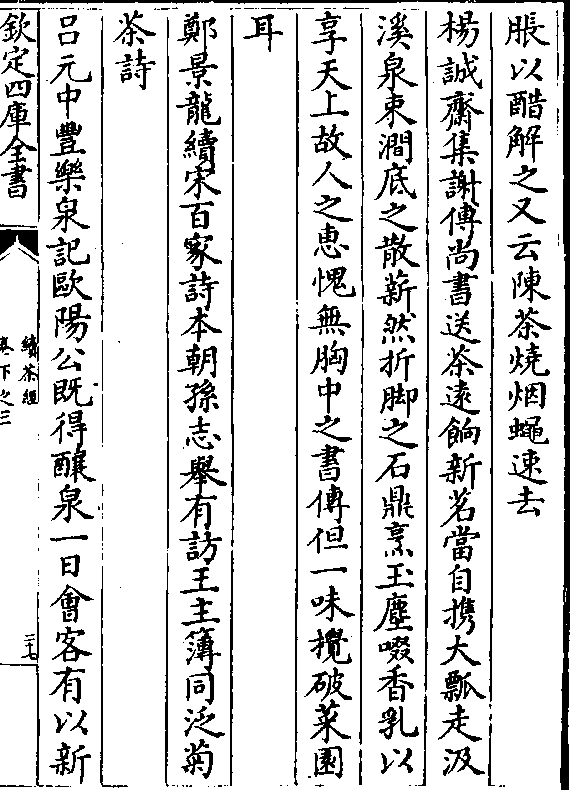 脹以醋解之又云陳茶燒烟蠅速去
楊誠齋集謝傅尚書送茶遠餉新茗當自攜大瓢走汲
溪泉束澗底之散薪然折脚之石鼎烹玉塵啜香乳以
享天上故人之惠愧無胸中之書傳但一味攪破菜園
耳
鄭景龍續宋百家詩本朝孫志舉有訪王主簿同泛菊
茶詩
呂元中豐樂泉記歐陽公既得釀泉一日會客有以新
欽定四庫全書
續茶經
卷下之三
三七